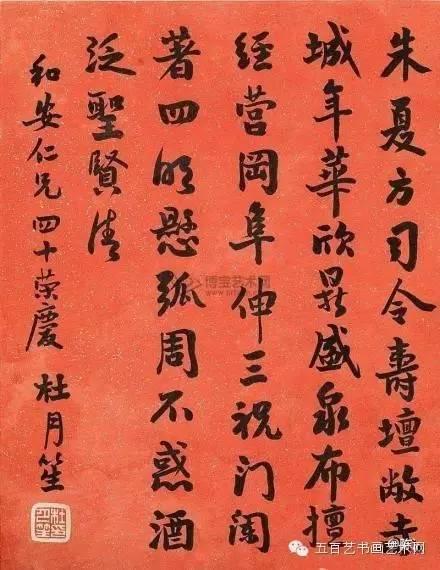 朱夏方司令壽壇敞赤
城年華欣鼎盛泉布擅
經营岡阜伸三祝门闾
著四明懸弧周不惑酒
泛聖賢清
和安仁兄四十荣慶 杜月笙
博宝艺术网
五百艺书画艺术网